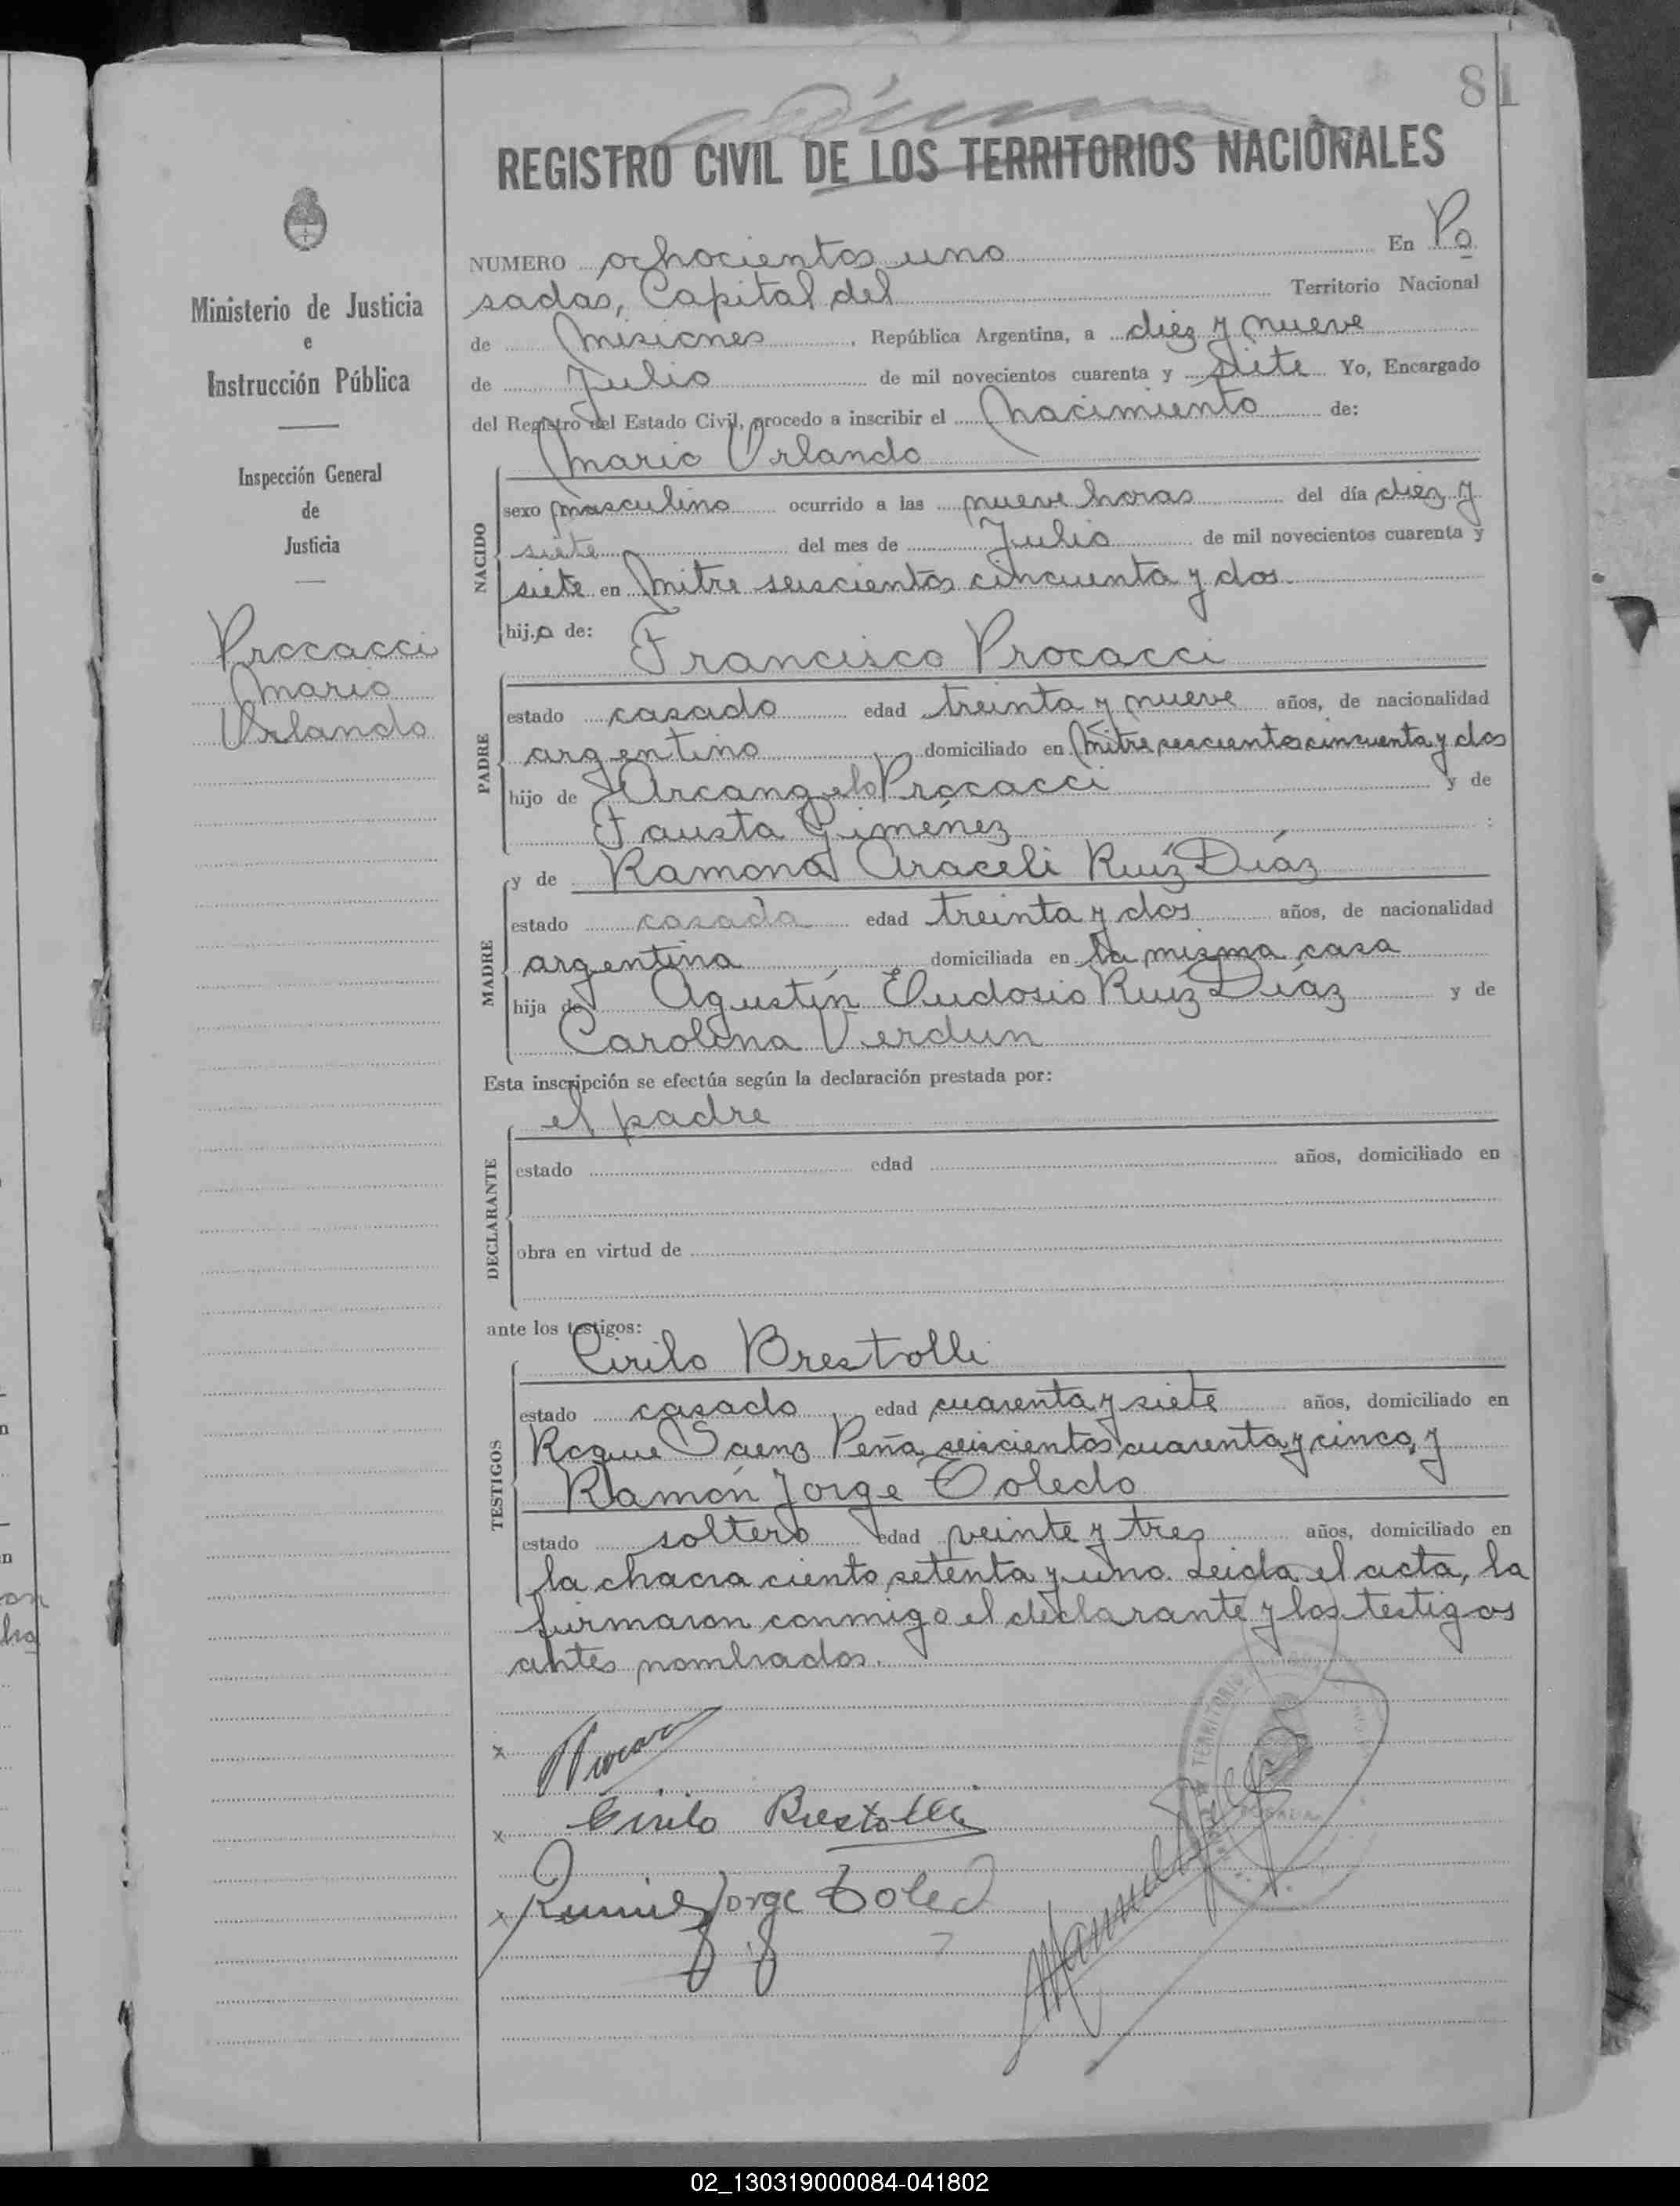 81
REGISTRO CIVIL DE LOS TERRITORIOS NACIONALES
NUMERO ochocientos uno En Po
sadas, Capital del Territorio Nacional
de Misiones, República Argentina, a diez y nueve
de Julio de mil novecientos cuarenta y siete Yo, Encargado
del Registro del Estado Civil, procedo a inscribir el Nacimiento de:
Mario Orlando
NACIDO
sexo masculino ocurrido a las nueve horas del día diez y
siete del mes de Julio de mil novecientos cuarenta y
siete en Mitre seiscientos cincuenta y dos
hijo de: Francisco Procacci
PADRE
estado casado edad treinta y nueve años, de nacionalidad
argentino domiciliado en Mitre seiscientos cincuenta y dos
hijo de Arcangelo Procacci y de
Fausta Giménez :
y de Ramona Araceli Ruíz Díaz
MADRE
estado casada edad treinta y dos años, de nacionalidad
argentina domiciliada en la misma casa
hija de Agustín Eludosio Ruíz Díaz y de
Carolina Verdun
Esta inscripción se efectúa según la declaración prestada por:
el padre
DECLARANTE
estado edad años, domiciliado en
obra en virtud de
ante los testigos:
Cirilo Brestolli
TESTIGOS
estado casado edad cuarenta y siete años, domiciliado en
Roque Saenz Peña seiscientos cuarenta y cinco, y
Ramón Jorge Toledo
estado soltero edad veinte y tres años, domiciliado en
la chacra ciento setenta y uno. Leida el acta, la
firmaron conmigo el declarante y los testigos
antes nombrados.
x
x Cirilo Brestolli
x Jorge Toledo
Manuel
TERRITORIO
Ministerio de Justicia
e
Instrucción Pública
Inspección General
de
Justicia
Procacci
Mario
Orlando
02_130319000084-041802